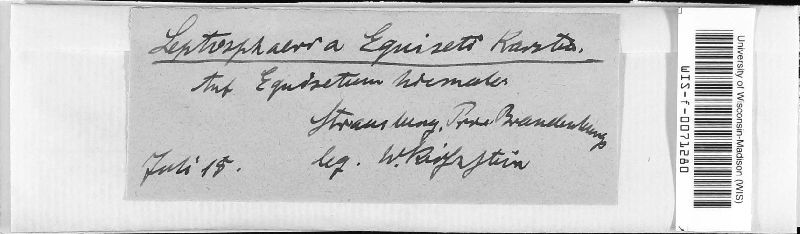 Leptosphaeria Equiseti Karsten.
Auf Equisetum hiemale
Strausberg, Prov. Brandenburg
Juli 15. leg. W. Kirschstein
University of Wisconsin-Madison (WIS)
WIS-f-0071280